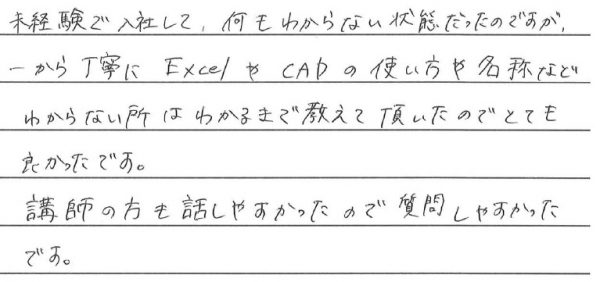 未経験で入社して、何もわからない状態だったのですが、
一から丁寧に ExcelやCADの使い方や名称など
わからない所はわかるまで教えて頂いたのでとても
良かったです。
講師の方も話しやすかったので質問しやすかった
です。